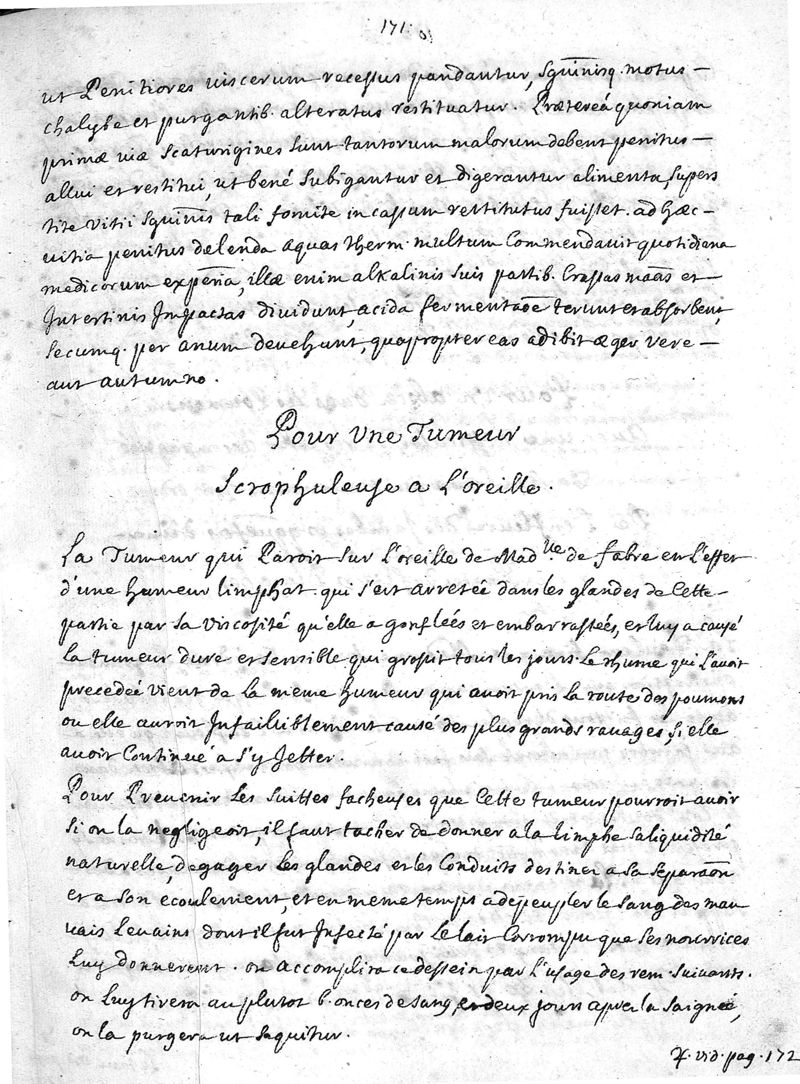 171.
ut Penitiores viscerum recessus pandantur, Sguinisq. motus –
chalybe et purgantib. alteratus restituatur. Prætereá quoniam
primæ viæ Scaturigines sunt tantorum malorum debent penitus –
allui et restitui, ut bené subigantur et digerantur alimenta, supers
tite vitii Sguinis tali fomite in cassum restitutus fuisset. ad hæc –
vitia penitus delenda aquas therm. multum Commendavit quotidiana
medicorum experia, illæ enim alkalinis suis partib. Crassas maas et –
Intestinis Impactas dividunt, acida fermentaoe terunt et absorbent,
Secumq. per anum devehunt, quapropter eas adibit æger vere –
aut autumno.
Pour Une Tumeur
Scrophuleuse a L'oreille.
La Tumeur qui Paroit sur L'oreille de Mad.lle de fabre en L'effet
d'une humeur limphat. qui s'est arretée dans les glandes de Cette –
partie par sa viscosité qu'elle a gonflées et embarrassées, et luy a causé
la tumeur dure et sensible qui grossit tous les jours. Le rhume qui L'avoit
precedeé vient de la meme humeur qui avoit pris la route des poumons
ou elle auroit Infailliblement causé des plus grands ravages, si elle
avoit Continué a s'y Jetter.
Pour Prevenir les suittes facheuses que Cette tumeur pourroit avoir
si on la negligeoit, il faut tacher de donner a la limphe sa liquidité
naturelle, degager les glandes et les Conduits destinez a sa separaon
et a son ecoulement, et en meme temps a depeupler le sang des mau
vais Levains dont il fut Infecté par Le lait Corrompu que ses nourrices
Luy donnerent. on accomplira ce dessein par L'usage des rem. suivants.
on Luy tirera au plutot 6. onces de sang, et deux jours aprez la saignée,
on la purgera ut sequitur.
vid. pag. 172